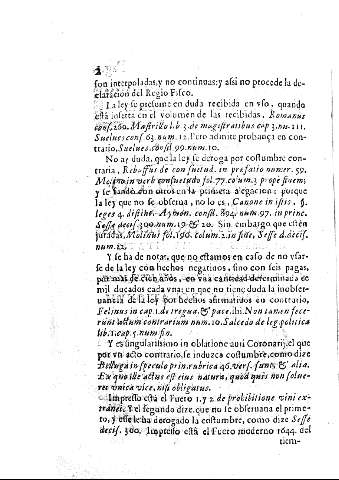 2
son interpoladas, y no continuas; y assi no procede la de-
claracion del Regio Fisco.
La ley se presume en duda recibida en vso, quando
está inserta en el volumen de las recibidas, Romanus
cons. 260. Mastrillo lib 3. de magistratibus cap 3. nu. 111.
Suelues cons 63. num. 12. Pero admite probança en con-
trario, Suelues consil 99. num. 10.
No ay duda, que la ley se deroga por costumbre con-
traria, Rebuffus de consuetud. in prefatio numer. 59,
fol. 77. colum. 3. prope finem;
y se porque
la ley que no se observa, no lo es, Canone in istis, §.
leges 4. distinc. Aymon. consil. 894. num. 97. in princ.
Sesse decis. 300. num. 19 & 20. Sin embargo que estén
juradas, Molinus fol. 196. colum. 2. in fine, Sesse d. decis.
num. 12.
Y se ha de notar, que no estamos en caso de no vsar-
se de la ley con hechos negatiuos, sino con seis pagas,
por mas de cien años, en vna cantidad determinada de
mil ducados cada vna; en que no tiene duda la inobser-
uancia de la ley por hechos afirmatiuos en contrario,
Felinus in cap. 1. de tregua, & pace, ibi. Non tamen fece-
runt actum contrarium num. 10. Salcedo de leg politica
lib. 1. cap. 5. num. fin.
Y es singularissimo in oblatione auri Coronarij, el que
por vn acto contrario, se induzca costumbre, como dize
Belluga in speculo prin. rubrica 46. vers. sunt, & alia.
Ex quo ille actus est eius natura, quod quis non solue-
ret vnica vice, nisi obligatus.
Impressa está el Fuero 1. y 2 de prohibitione vini ex-
tranei. Y el segundo dize, que no se obseruana el prime-
ro, y esse le ha derogado la costumbre, como dize Sesse
decis. 300. Impresso está el Fuero moderno 1644. del
tiem-